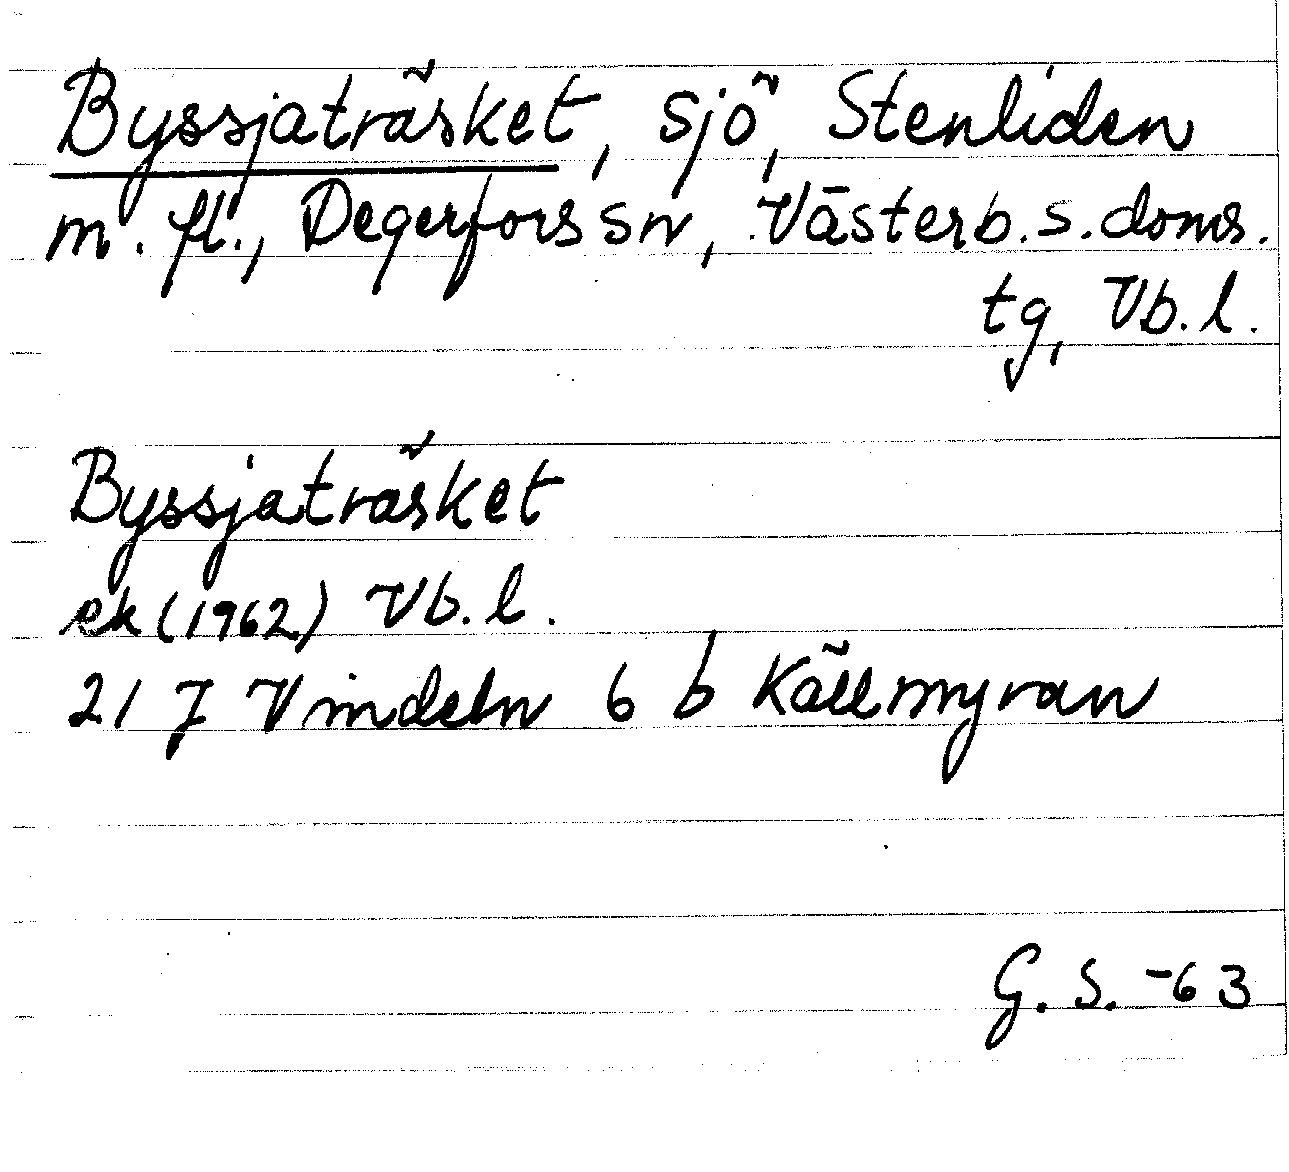 Byssjaträsket, sjö, Stenliden
m. fl., Degerfors sn, Västerb. s. doms.
tg, Vb. l.
Byssjaträsket
ek (1962) Vb. l.
21 J Vindeln 6 b Källmyran
G. S. -63